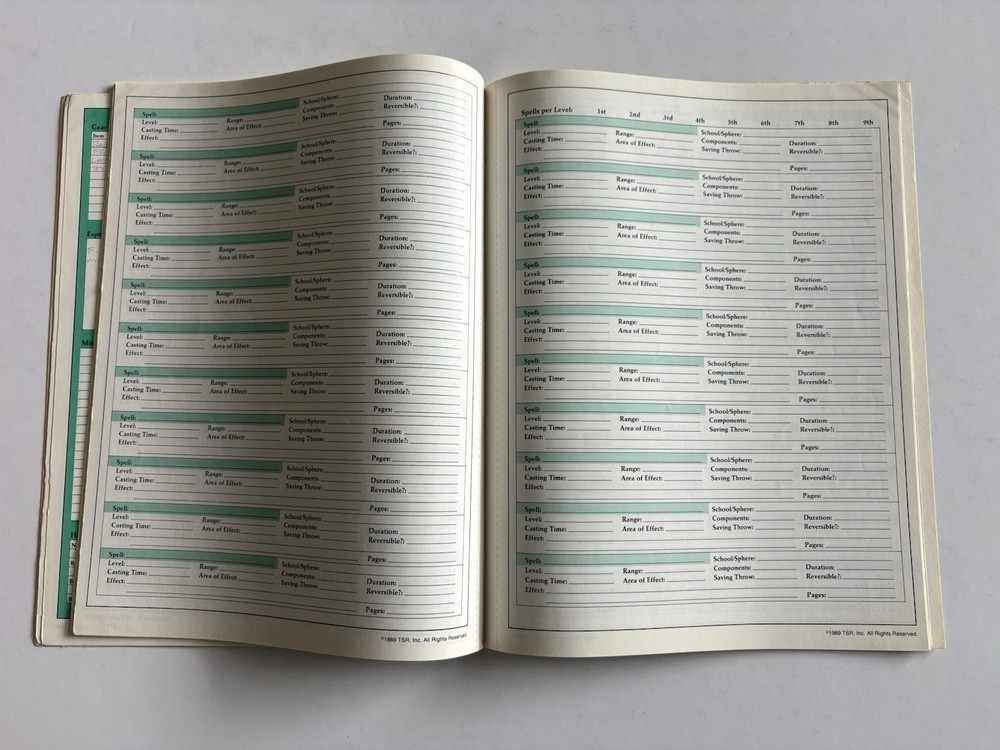 Gear
Item
Spell: School/Sphere:
Level: Range: Components: Duration:
Casting Time: Area of Effect: Saving Throw: Reversible?:
Effect:
Pages:
Spell: School/Sphere:
Level: Range: Components: Duration:
Casting Time: Area of Effect: Saving Throw: Reversible?:
Effect:
Pages:
Spell: School/Sphere:
Level: Range: Components: Duration:
Casting Time: Area of Effect: Saving Throw: Reversible?:
Effect:
Pages:
Spell: School/Sphere:
Level: Range: Components: Duration:
Casting Time: Area of Effect: Saving Throw: Reversible?:
Effect:
Pages:
Spell: School/Sphere:
Level: Range: Components: Duration:
Casting Time: Area of Effect: Saving Throw: Reversible?:
Effect:
Pages:
Spell: School/Sphere:
Level: Range: Components: Duration:
Casting Time: Area of Effect: Saving Throw: Reversible?:
Effect:
Pages:
Spell: School/Sphere:
Level: Range: Components: Duration:
Casting Time: Area of Effect: Saving Throw: Reversible?:
Effect:
Pages:
Spell: School/Sphere:
Level: Range: Components: Duration:
Casting Time: Area of Effect: Saving Throw: Reversible?:
Effect:
Pages:
Spell: School/Sphere:
Level: Range: Components: Duration:
Casting Time: Area of Effect: Saving Throw: Reversible?:
Effect:
Pages:
Spell: School/Sphere:
Level: Range: Components: Duration:
Casting Time: Area of Effect: Saving Throw: Reversible?:
Effect:
Pages:
Spell: School/Sphere:
Level: Range: Components: Duration:
Casting Time: Area of Effect: Saving Throw: Reversible?:
Effect:
Pages:
©1989 TSR, Inc. All Rights Reserved.
Spells per Level: 1st 2nd 3rd 4th 5th 6th 7th 8th 9th
Spell: School/Sphere:
Level: Range: Components: Duration:
Casting Time: Area of Effect: Saving Throw: Reversible?:
Effect:
Pages:
Spell: School/Sphere:
Level: Range: Components: Duration:
Casting Time: Area of Effect: Saving Throw: Reversible?:
Effect:
Pages:
Spell: School/Sphere:
Level: Range: Components: Duration:
Casting Time: Area of Effect: Saving Throw: Reversible?:
Effect:
Pages:
Spell: School/Sphere:
Level: Range: Components: Duration:
Casting Time: Area of Effect: Saving Throw: Reversible?:
Effect:
Pages:
Spell: School/Sphere:
Level: Range: Components: Duration:
Casting Time: Area of Effect: Saving Throw: Reversible?:
Effect:
Pages:
Spell: School/Sphere:
Level: Range: Components: Duration:
Casting Time: Area of Effect: Saving Throw: Reversible?:
Effect:
Pages:
Spell: School/Sphere:
Level: Range: Components: Duration:
Casting Time: Area of Effect: Saving Throw: Reversible?:
Effect:
Pages:
Spell: School/Sphere:
Level: Range: Components: Duration:
Casting Time: Area of Effect: Saving Throw: Reversible?:
Effect:
Pages:
Spell: School/Sphere:
Level: Range: Components: Duration:
Casting Time: Area of Effect: Saving Throw: Reversible?:
Effect:
Pages:
Spell: School/Sphere:
Level: Range: Components: Duration:
Casting Time: Area of Effect: Saving Throw: Reversible?:
Effect:
Pages:
©1989 TSR, Inc. All Rights Reserved.